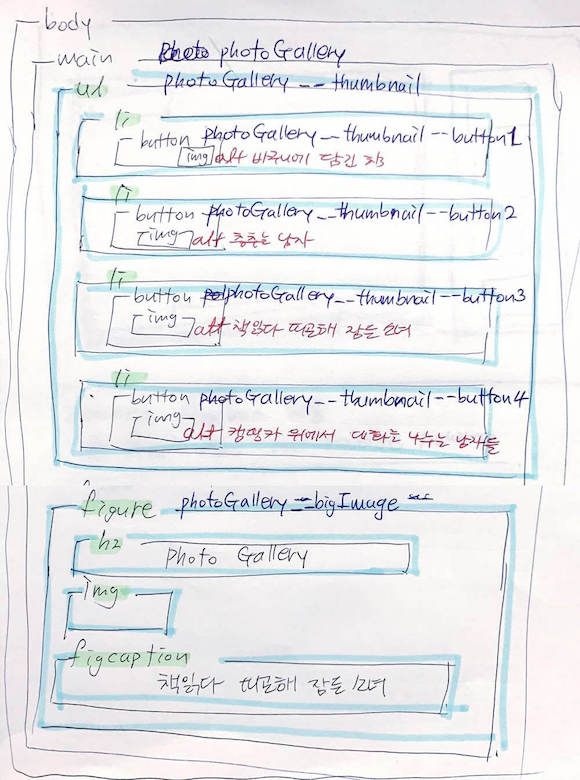 body
main photoGallery
ul photoGallery__thumbnail
li
button photoGallery__thumbnail--button1
img alt 바구니에 담긴
li
button photoGallery__thumbnail--button2
img alt 춤추는 남자
li
button photoGallery__thumbnail--button3
img alt 책읽다 피곤해 잠든 소녀
li
button photoGallery__thumbnail--button4
img
alt 캠핑카 위에서 대화를 나누는 남자들
figure photoGallery__bigImage
h2
photo Gallery
img
figcaption
책읽다 피곤해 잠든 소녀